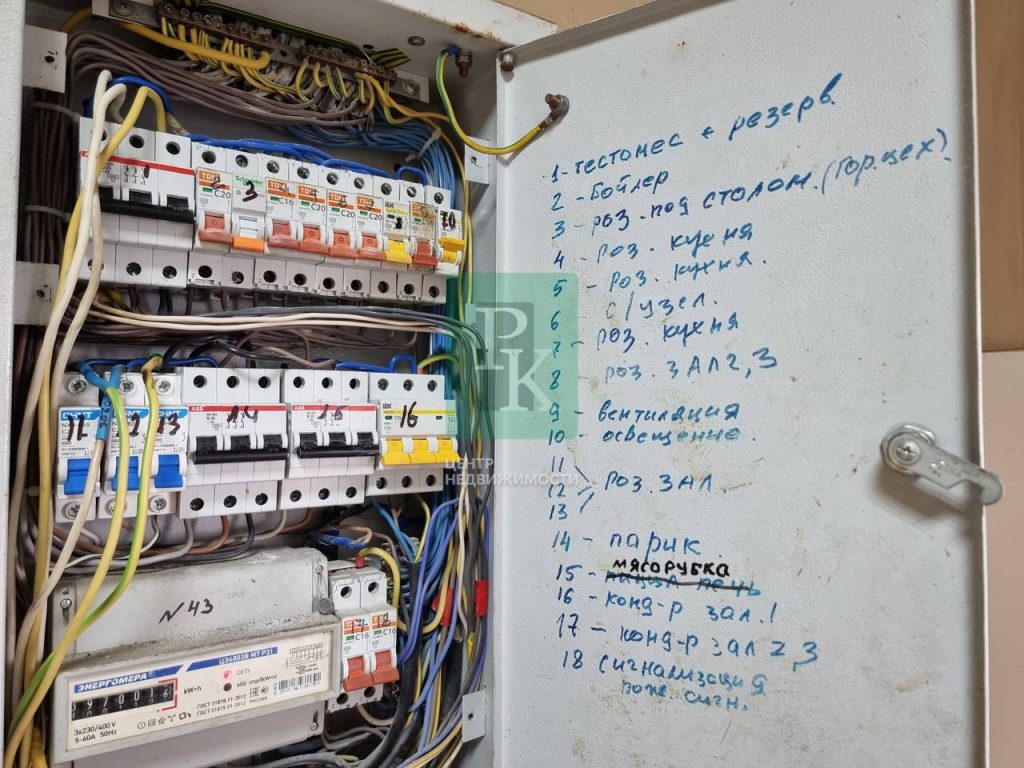 1-тестомес + резерв
2 - Бойлер
3 - роз. под столом. (Гор.цех).
4 - роз. кухня
5 - роз. кухня.
6 - с/узел.
7 - роз. кухня
8 - роз. зал 2, 3
9 - вентиляция
10 - освещение.
11
12 роз. зал.
13
14 - парик
мясорубка
15 -
16 - конд-р зал. 1
17 - конд-р зал 2, 3
18 сигнализация
пож. сигн.
TDM
2
C20
Schneider
3
TDM
C16
TDM
C20
TDM
C20
IEK
10
11
12
13
ABB
14
ABB
15
IEK
16
РК
ЦЕНТР
НЕДВИЖИМОСТИ
N43
17 18
C16 C16
ЭНЕРГОМЕРА
ЦЭ6803В М7 Р31
kW•h
СЕТЬ
ГОСТ 31818.11-2012
ГОСТ 31819.21-2012 РОССИЯ
3x230/400 V
5-60A 50Hz